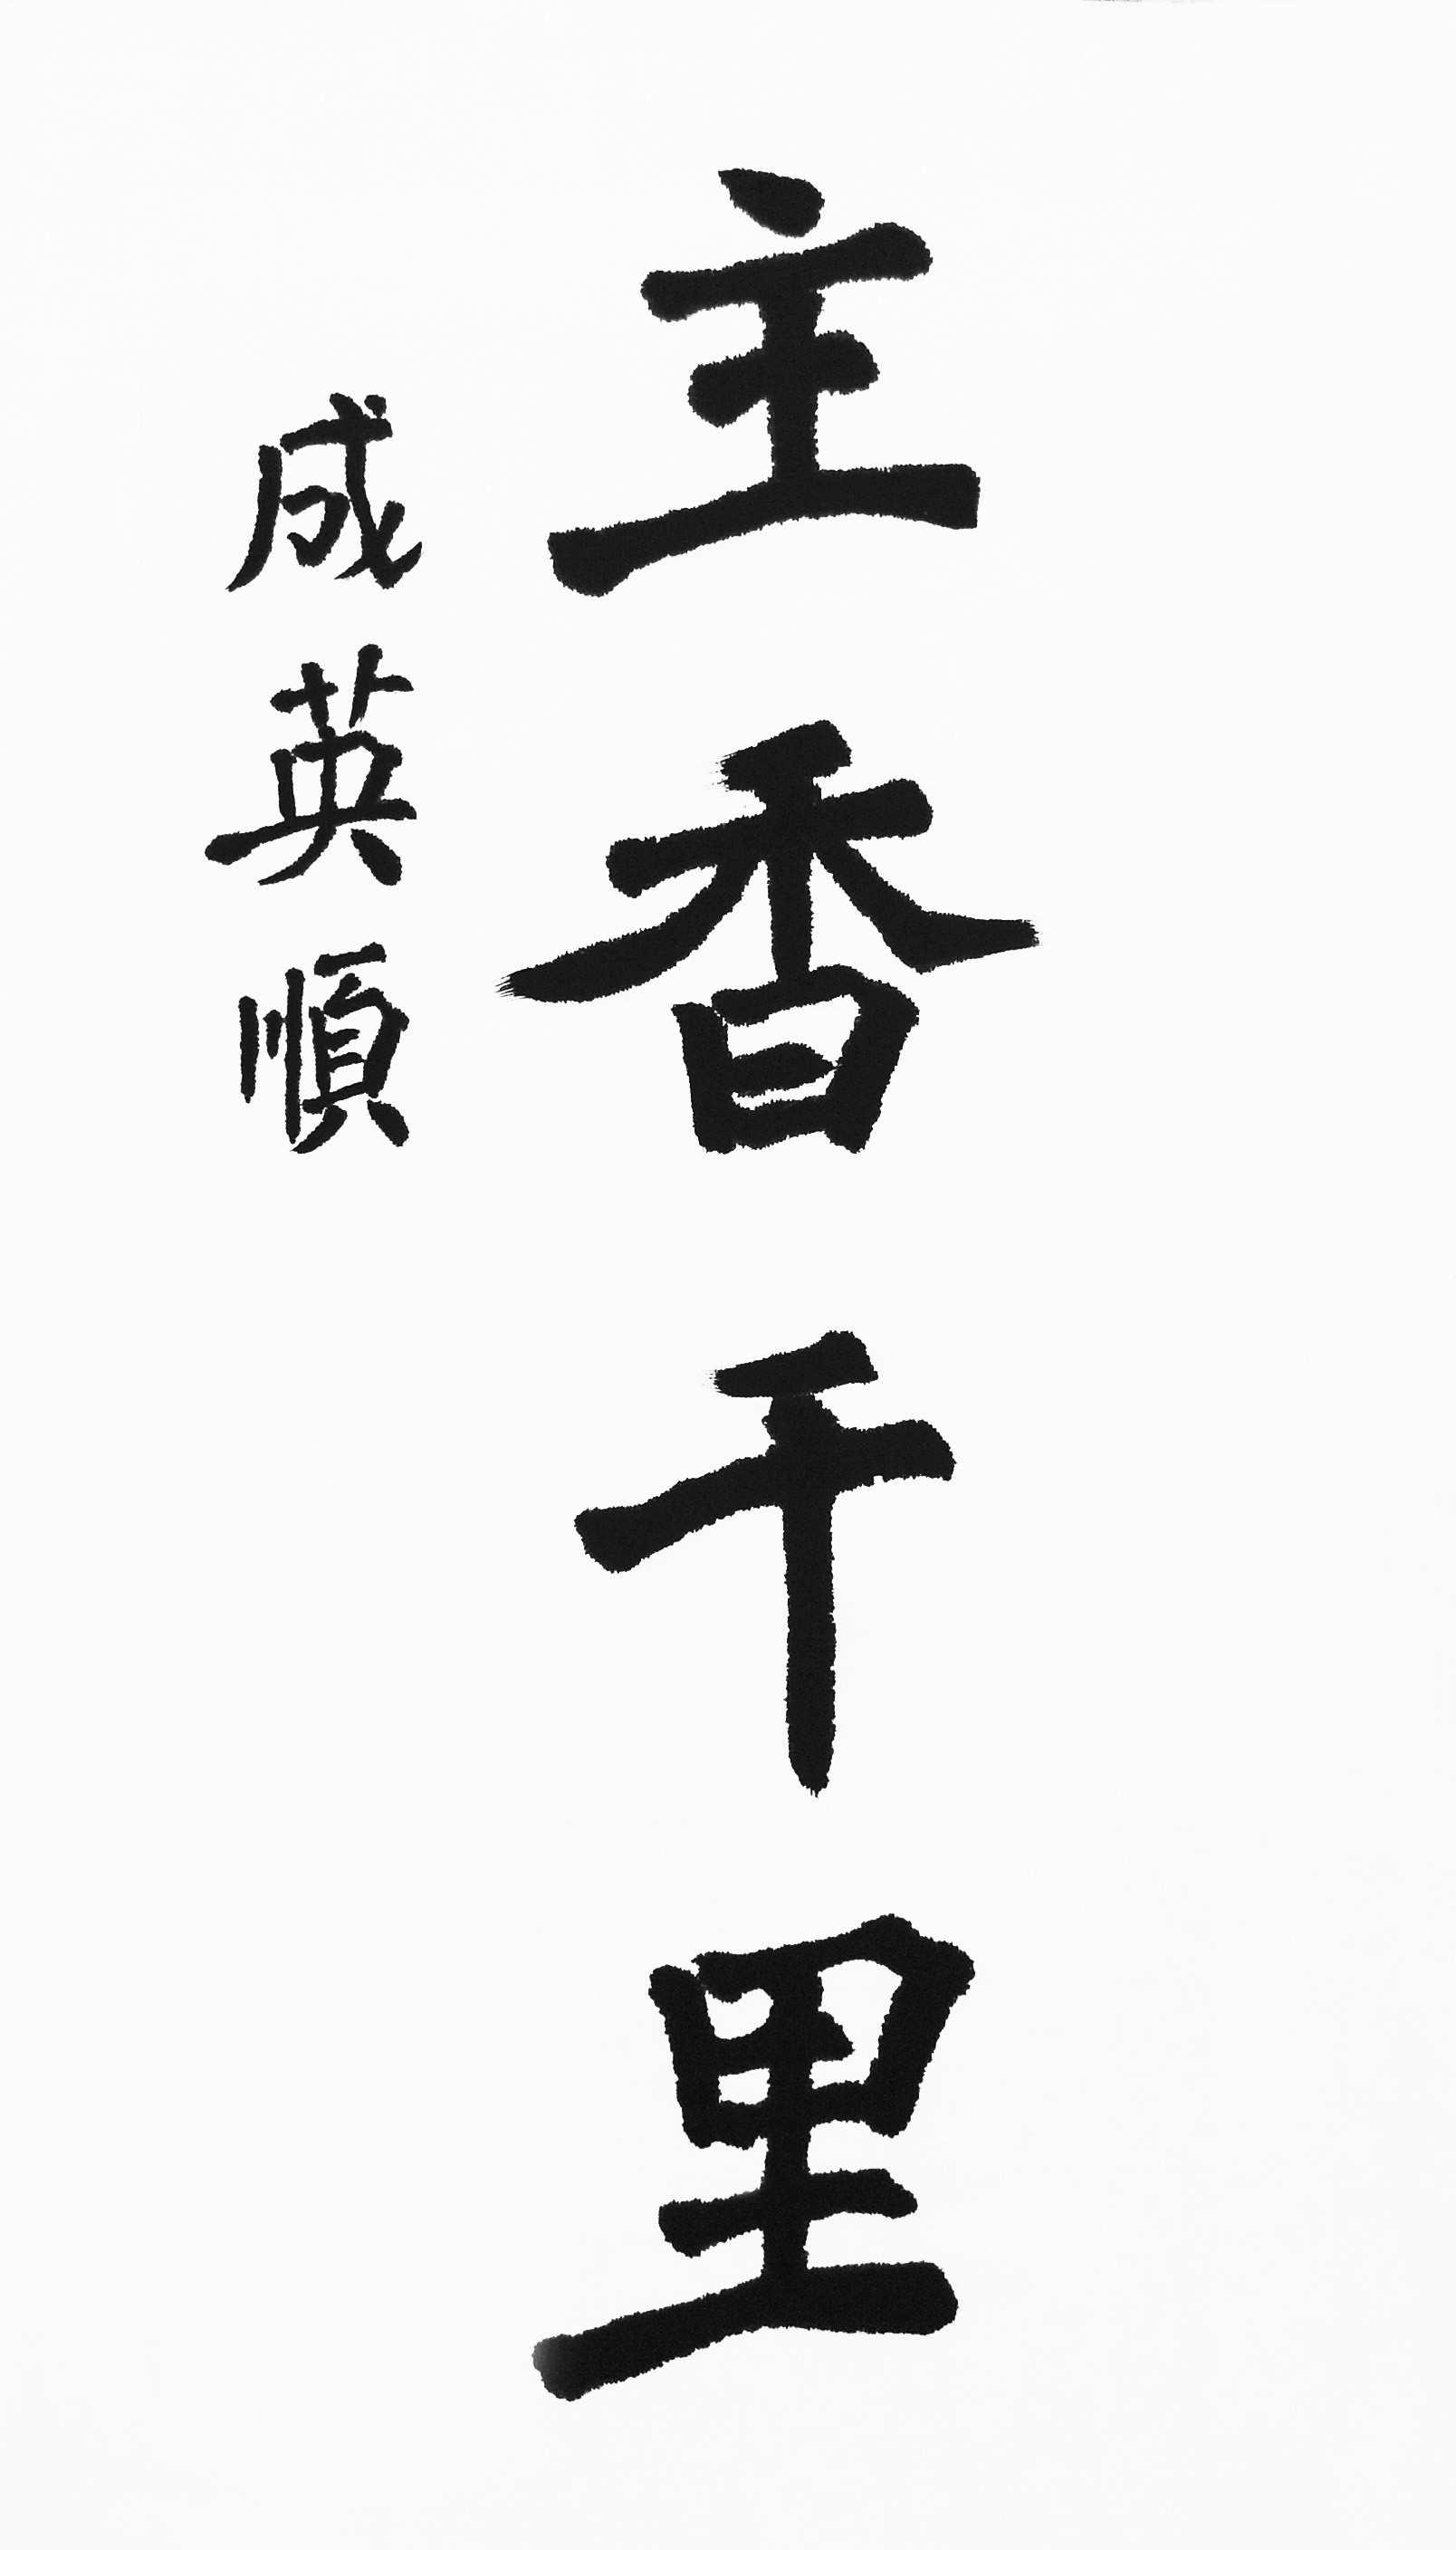 主香千里
成英順